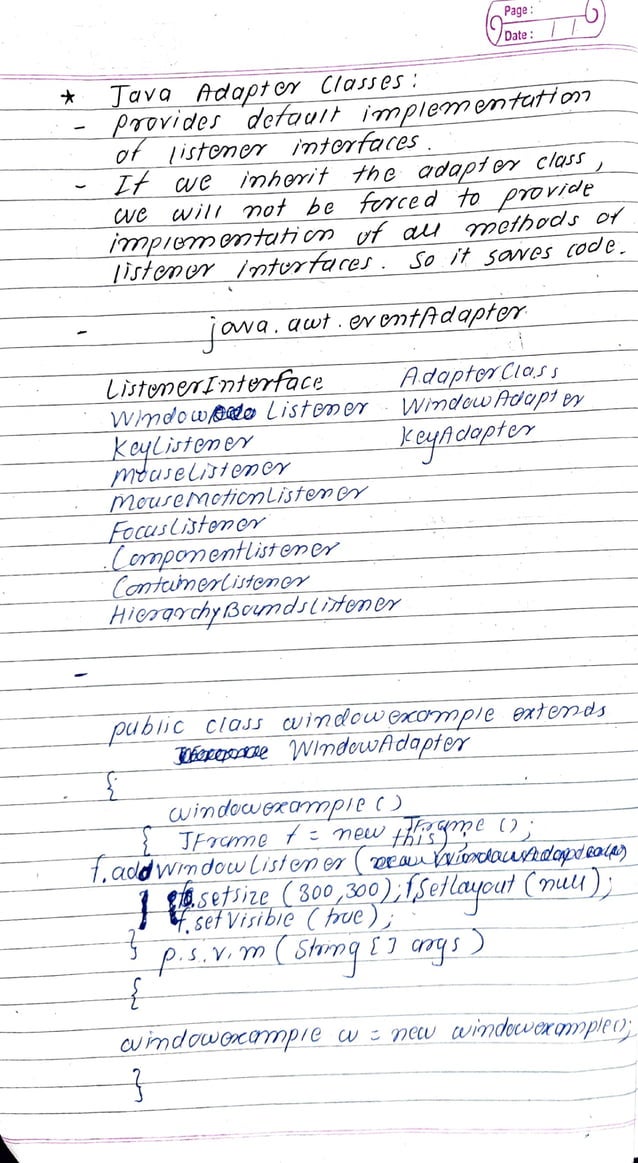 Page :
Date : / /
* Java Adapter Classes :
- provides default implementation
of listener interfaces.
- If we inherit the adapter class,
we will not be forced to provide
implementation of all methods of
listener interfaces. So it saves code.
- java.awt.eventAdapter
ListenerInterface AdapterClass
Window Listener WindowAdapter
KeyListener KeyAdapter
MouseListener
MouseMotionListener
FocusListener
ComponentListener
ContainerListener
HierarchyBoundsListener
-
public class windowexample extends
WindowAdapter
{
windowexample ()
{ JFrame f = new JFrame ();
f.addWindowListener (this);
f.setsize (300,300); f.setlayout (null);
f.setVisible (true);
}
p.s.v.m (String [] args)
{
windowexample w = new windowexample();
}